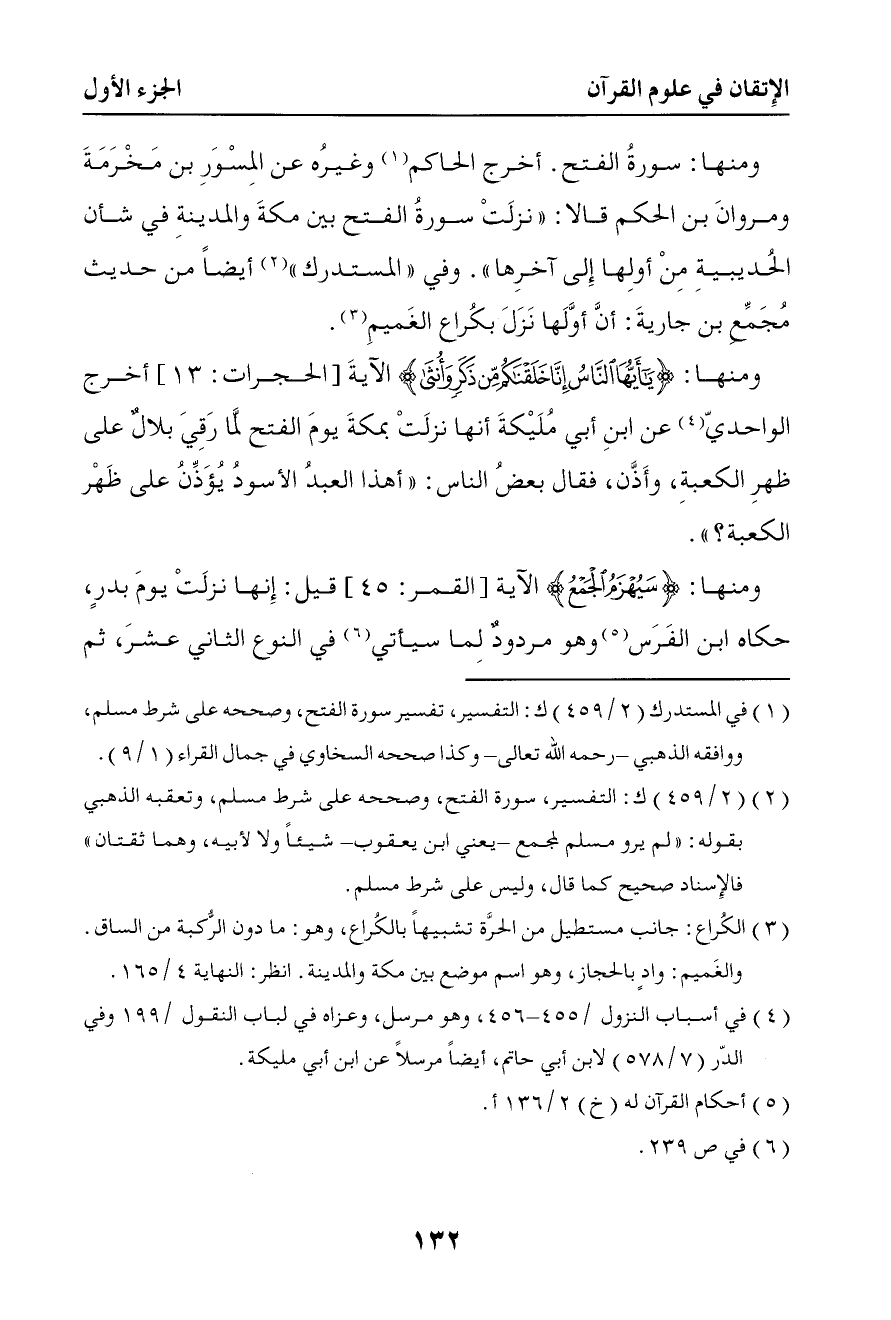 الإتقان في علوم القرآن الجزء الأول
ومنها: سورةُ الفتح. أخرج الحاكم(١) وغيرُه عن المِسْوَرِ بن مَخْرَمَةَ
ومروانَ بن الحكم قالا: «نزلَتْ سورةُ الفتح بين مكةَ والمدينةِ في شأن
الحُديبيةِ مِنْ أولها إلى آخرها». وفي «المستدرك»(٢) أيضاً من حديث
مُجَمِّعِ بن جاريةَ: أنَّ أوَّلَها نَزَلَ بكُراع الغَميمِ(٣).
ومنها: ﴿يَٰٓأَيُّهَا ٱلنَّاسُ إِنَّا خَلَقْنَٰكُم مِّن ذَكَرٍ وَأُنثَىٰ﴾ الآيةَ [الحجرات: ١٣] أخرج
الواحديّ(٤) عن ابنِ أبي مُلَيْكةَ أنها نزلَتْ بمكةَ يومَ الفتح لمَّا رَقِيَ بلالٌ على
ظهرِ الكعبةِ، وأَذَّن، فقال بعضُ الناس: «أهذا العبدُ الأسودُ يُؤَذِّنُ على ظَهْر
الكعبة؟».
ومنها: ﴿سَيُهْزَمُ ٱلْجَمْعُ﴾ الآية [القمر: ٤٥] قيل: إنها نزلَتْ يومَ بدرٍ،
حكاه ابن الفَرَس(٥) وهو مردودٌ لِما سيأتي(٦) في النوع الثاني عشرَ، ثم
(١) في المستدرك (٤٥٩/٢) ك: التفسير، تفسير سورة الفتح، وصححه على شرط مسلم،
ووافقه الذهبي –رحمه الله تعالى– وكذا صححه السخاوي في جمال القراء (٩/١).
(٢) (٤٥٩/٢) ك: التفسير، سورة الفتح، وصححه على شرط مسلم، وتعقبه الذهبي
بقوله: «لم يرو مسلم لمجمع –يعني ابن يعقوب– شيئاً ولا لأبيه، وهما ثقتان»
فالإسناد صحيح كما قال، وليس على شرط مسلم.
(٣) الكُراع: جانب مستطيل من الحرَّة تشبيهاً بالكُراع، وهو: ما دون الرُّكبة من الساق.
والغَميم: وادٍ بالحجاز، وهو اسم موضع بين مكة والمدينة. انظر: النهاية ١٦٥/٤.
(٤) في أسباب النزول /٤٥٥–٤٥٦، وهو مرسل، وعزاه في لباب النقول /١٩٩ وفي
الدّر (٥٧٨/٧) لابن أبي حاتم، أيضاً مرسلاً عن ابن أبي مليكة.
(٥) أحكام القرآن له (خ) ١٣٦/٢ أ.
(٦) في ص ٢٣٩.
١٣٢